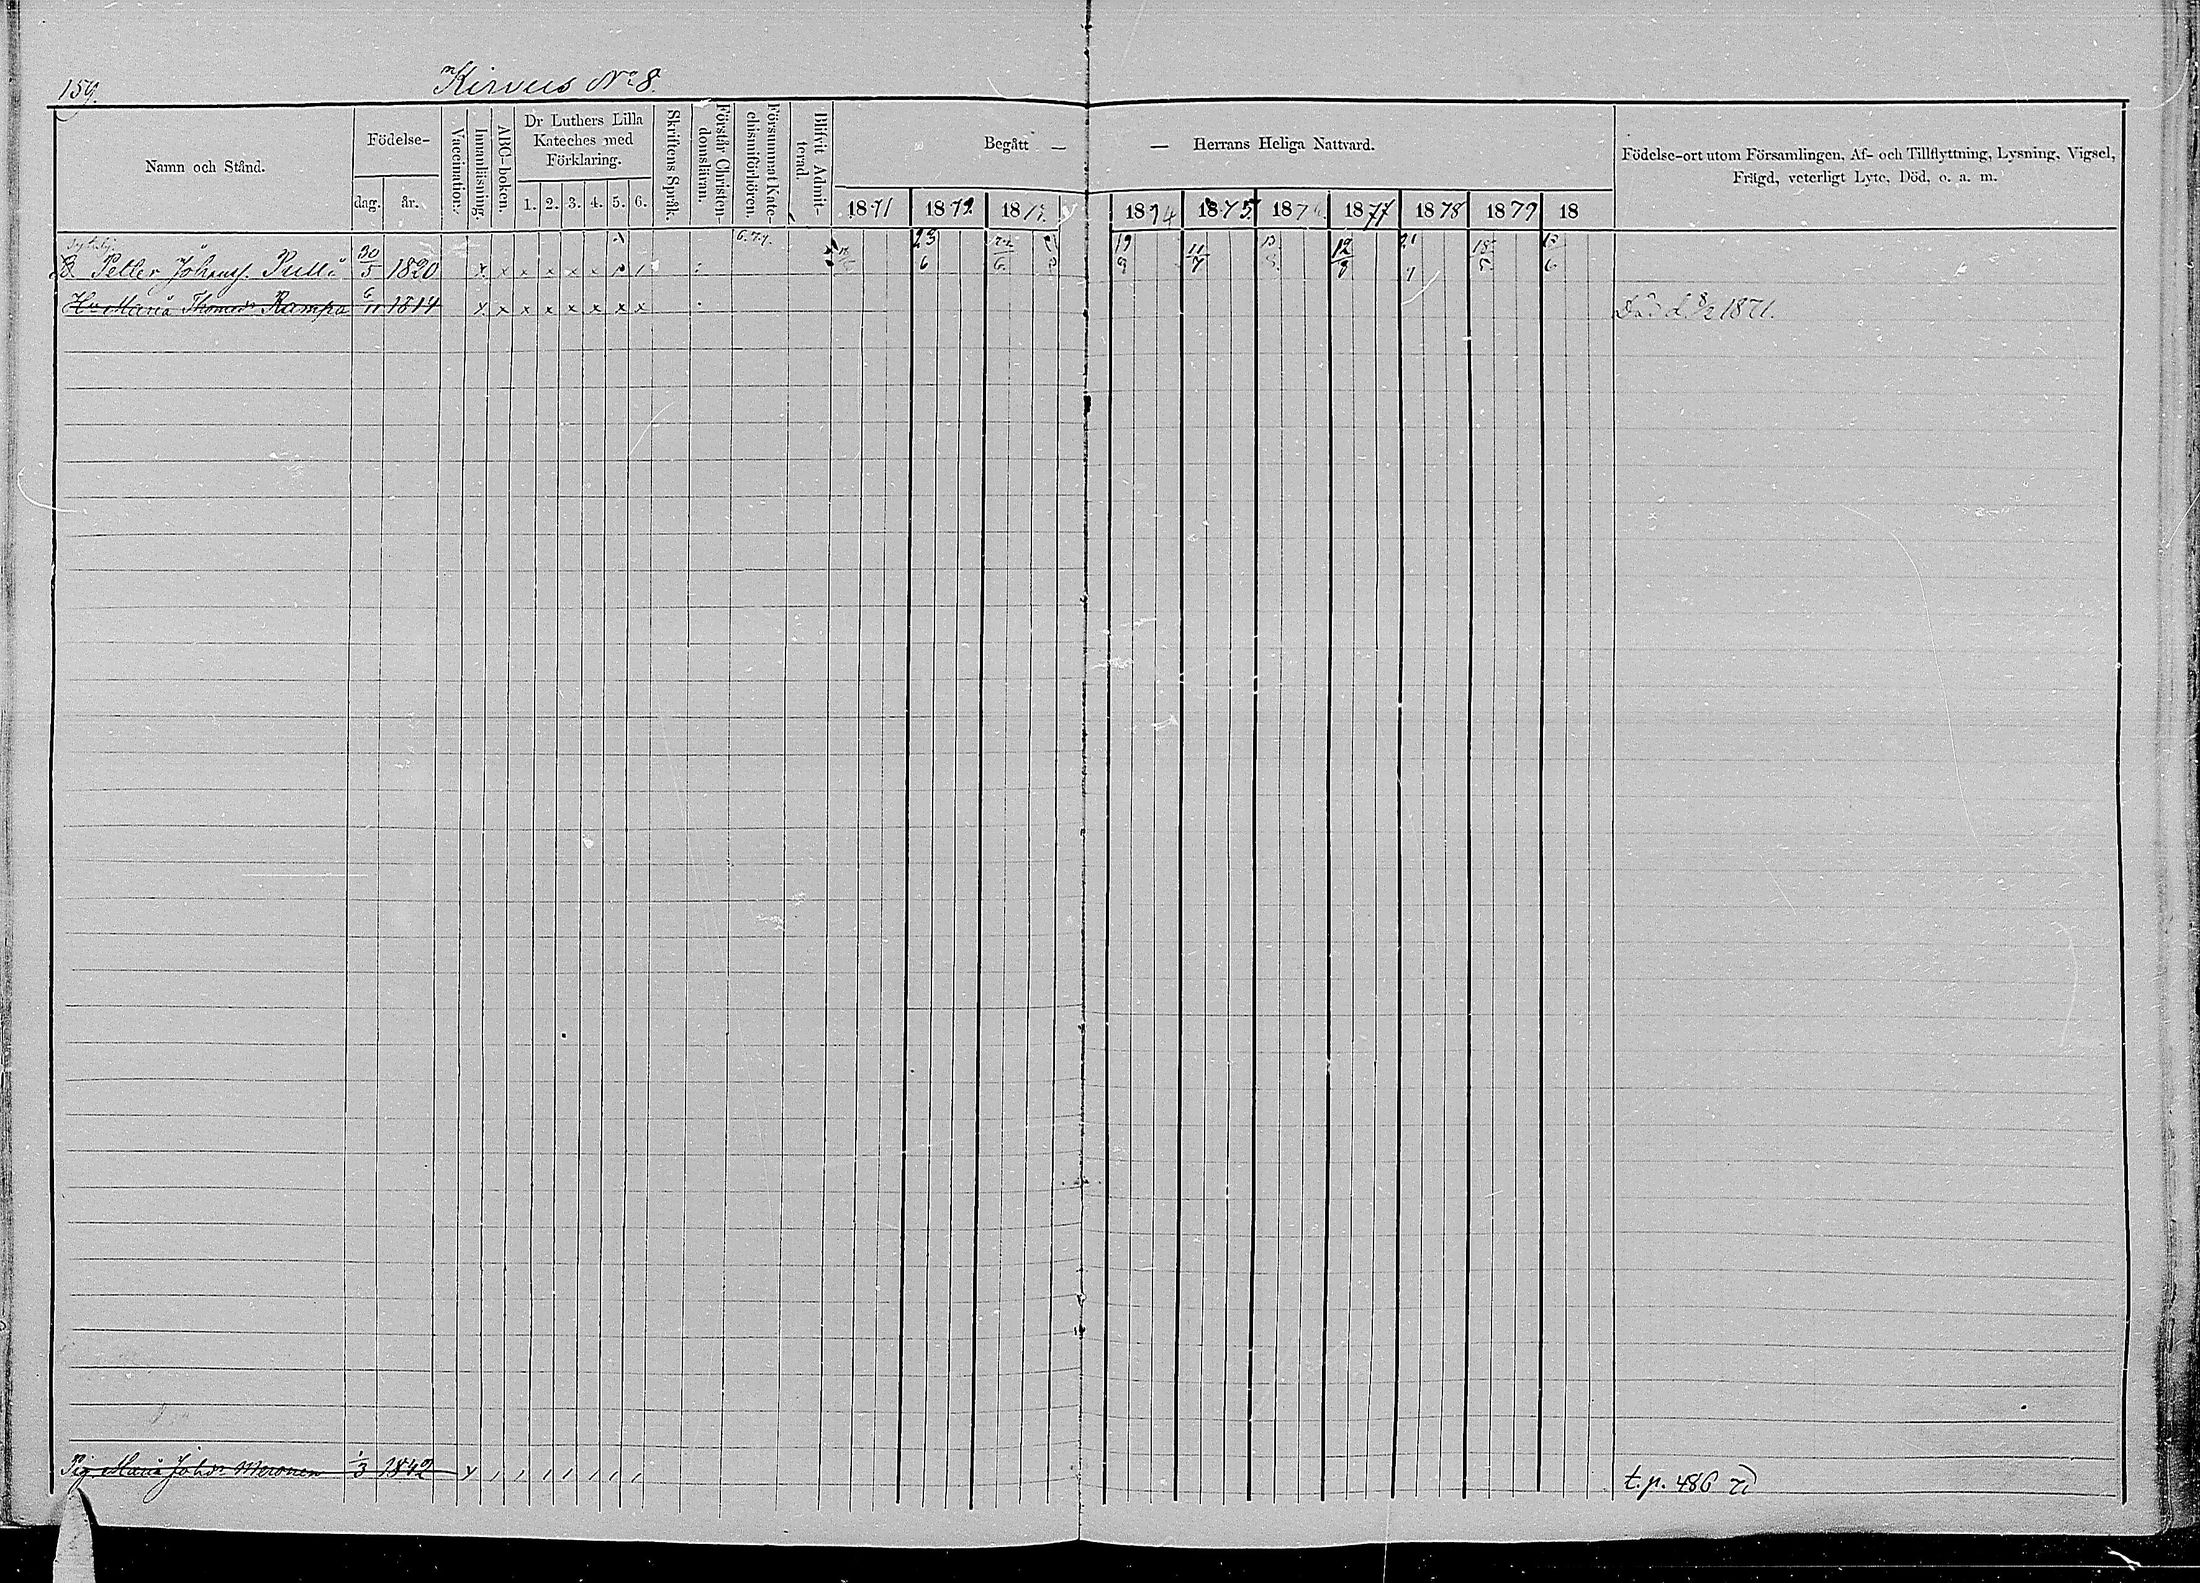 159.
Kirvus No 8.
Namn och Stånd.
Födelse-
dag. år.
Vaccination.
Innanläsning.
ABC-boken.
Dr Luthers Lilla Kateches med Förklaring.
1. 2. 3. 4. 5. 6.
Skriftens Språk.
Förstår Christendomsläran.
Försummat Katechismiförhören.
Blifvit Admitterad.
Begått — — Herrans Heliga Nattvard.
1871 1872 187 1874 1875 187 1877 1878 1879 18
Födelse-ort utom Församlingen, Af- och Tillflyttning, Lysning, Vigsel,
Frägd, veterligt Lyte, Död, o. a. m.
Petter Johanss. Pulli 30/5 1820 x x x x x x 23/6 19/9 11/7 12/9 18/5
Hu Maria Thomdr Rampa 6/11 1814 x x x x x x x x Död d. 8/2 1871.
Pig Maria Johdr Meronen 1/3 1842 x t.p. 486